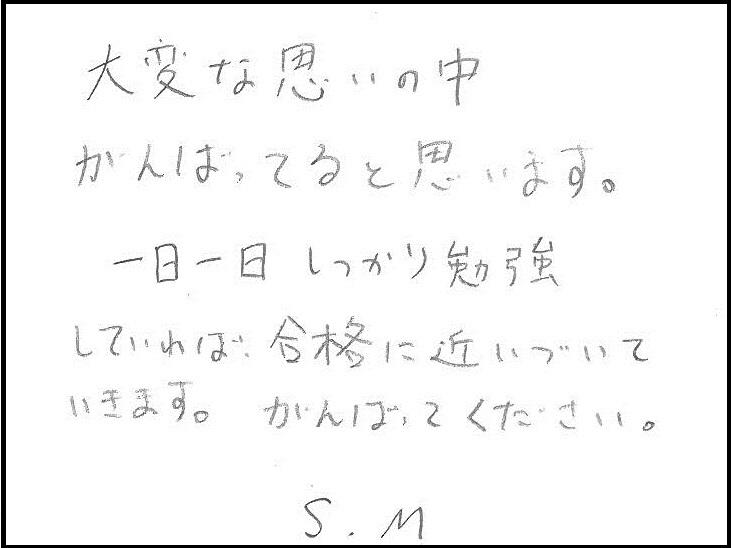 大変な思いの中
がんばってると思います。
一日一日 しっかり勉強
していれば、合格に近いづいて
いきます。 がんばってください。
S.M